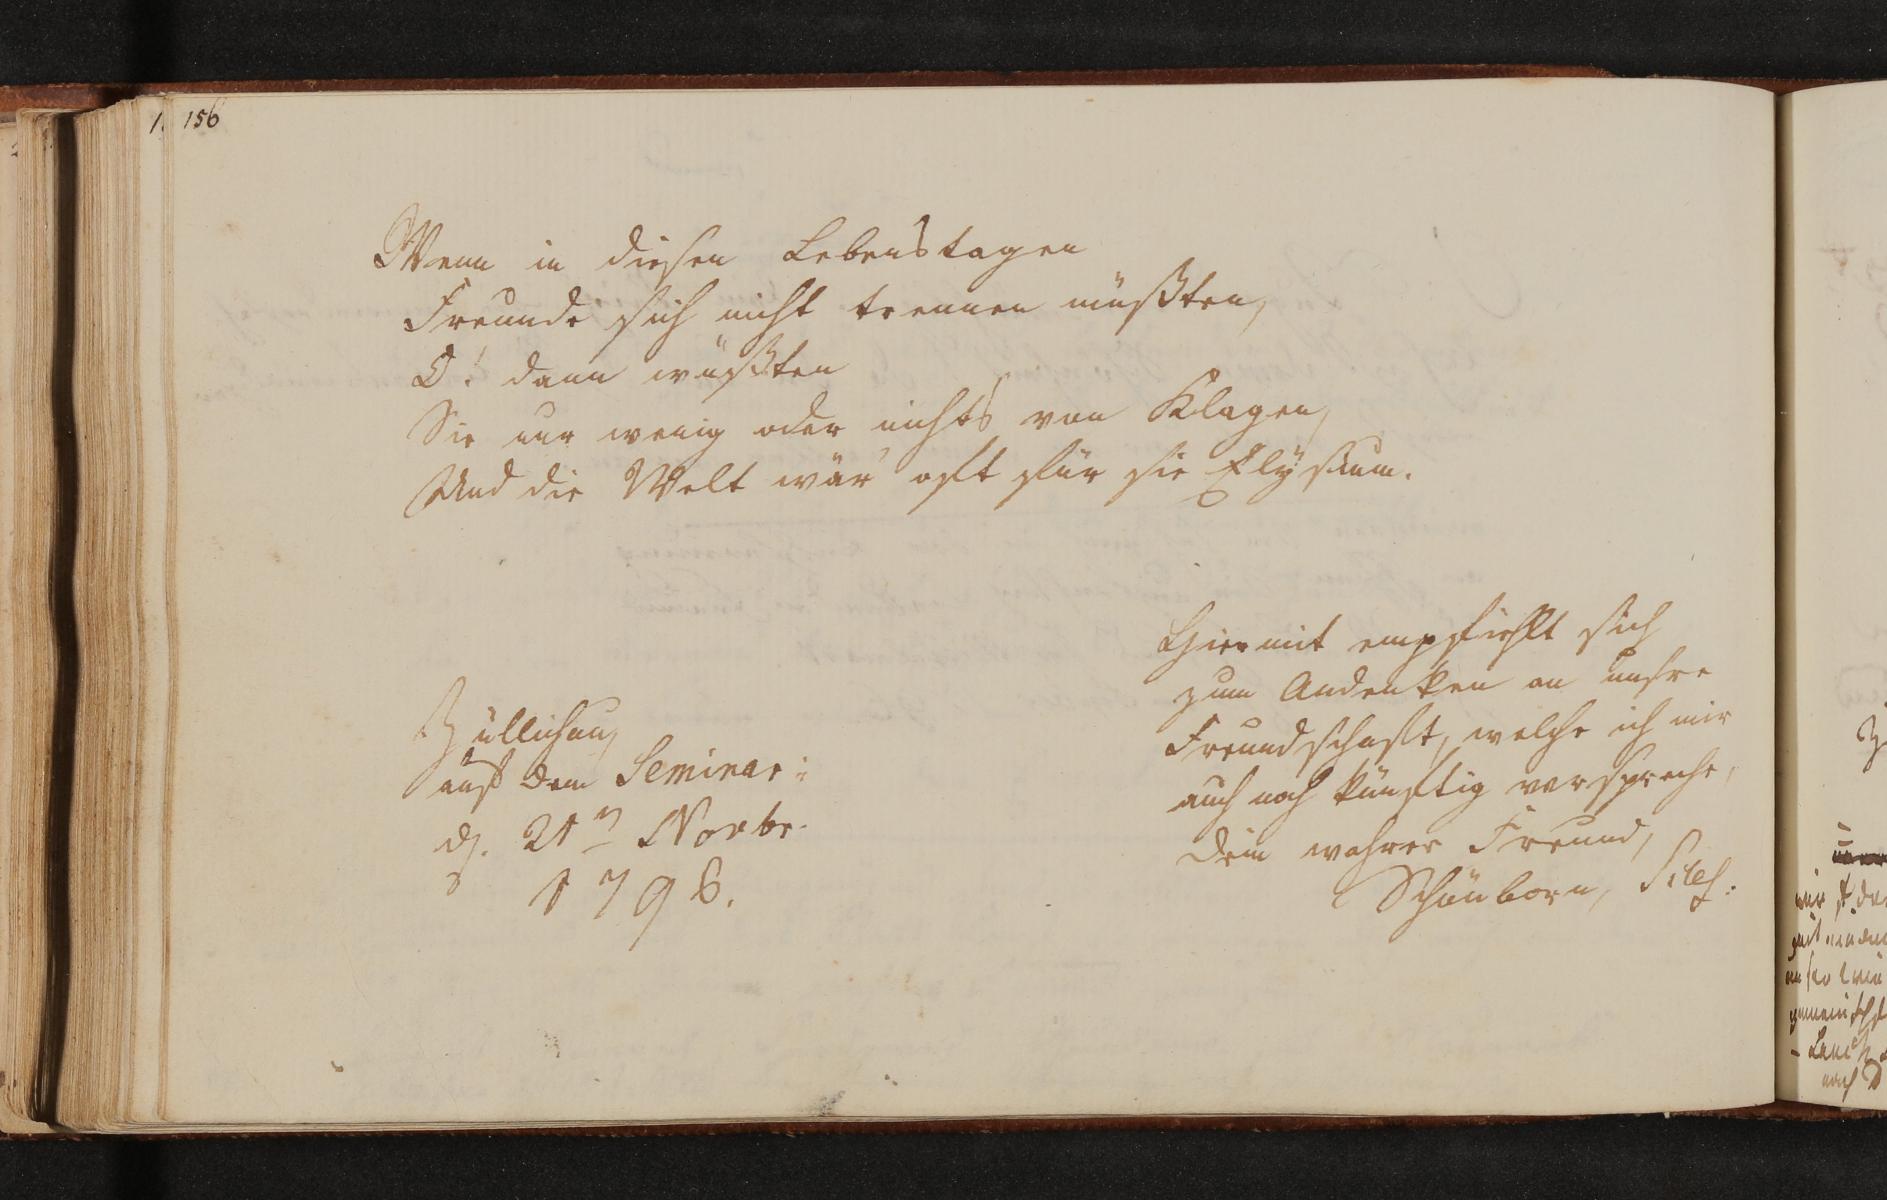 156
Wenn in diesen Lebenstagen
Freunde sich nicht trennen müßten,
O! dann wüßten
Sie nur wenig oder nichts von Klagen,
Und die Welt wär' oft für sie Elysium.
Hiermit empfiehlt sich
zum Andenken an unsre
Freundschaft, welche ich mir
auch noch künftig verspreche,
Dein wahrer Freund,
Schönborn, Siles:
Züllichau,
auf dem Seminar:
d. 21n Novbr.
1796.